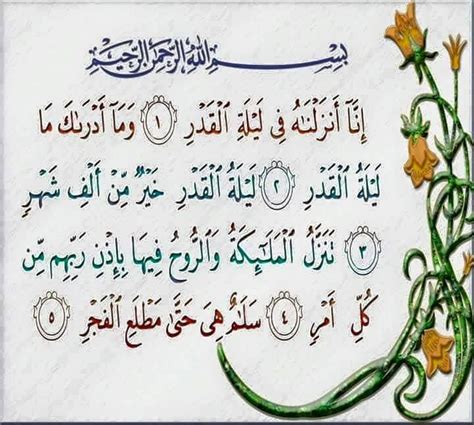 بِسْمِ اللَّهِ الرَّحْمَٰنِ الرَّحِيمِ
إِنَّآ أَنزَلْنَٰهُ فِى لَيْلَةِ ٱلْقَدْرِ ١ وَمَآ أَدْرَىٰكَ مَا
لَيْلَةُ ٱلْقَدْرِ ٢ لَيْلَةُ ٱلْقَدْرِ خَيْرٌ مِّنْ أَلْفِ شَهْرٍ
٣ تَنَزَّلُ ٱلْمَلَٰٓئِكَةُ وَٱلرُّوحُ فِيهَا بِإِذْنِ رَبِّهِم مِّن
كُلِّ أَمْرٍ ٤ سَلَٰمٌ هِىَ حَتَّىٰ مَطْلَعِ ٱلْفَجْرِ ٥